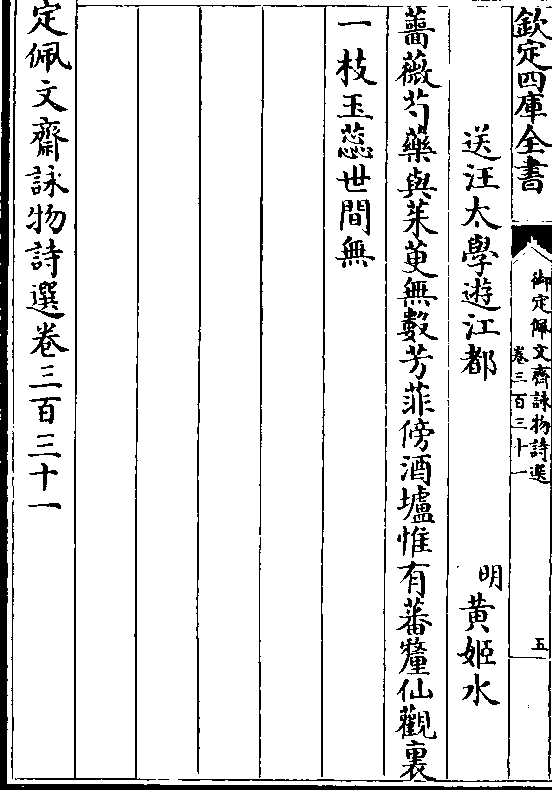 欽定四庫全書
御定佩文齋詠物詩選
卷三百三十一
五
送汪太學遊江都
明
黃姬水
薔薇芍藥與茱萸無數芳菲傍酒壚惟有蕃釐仙觀裏
一枝玉蕊世間無
定佩文齋詠物詩選卷三百三十一